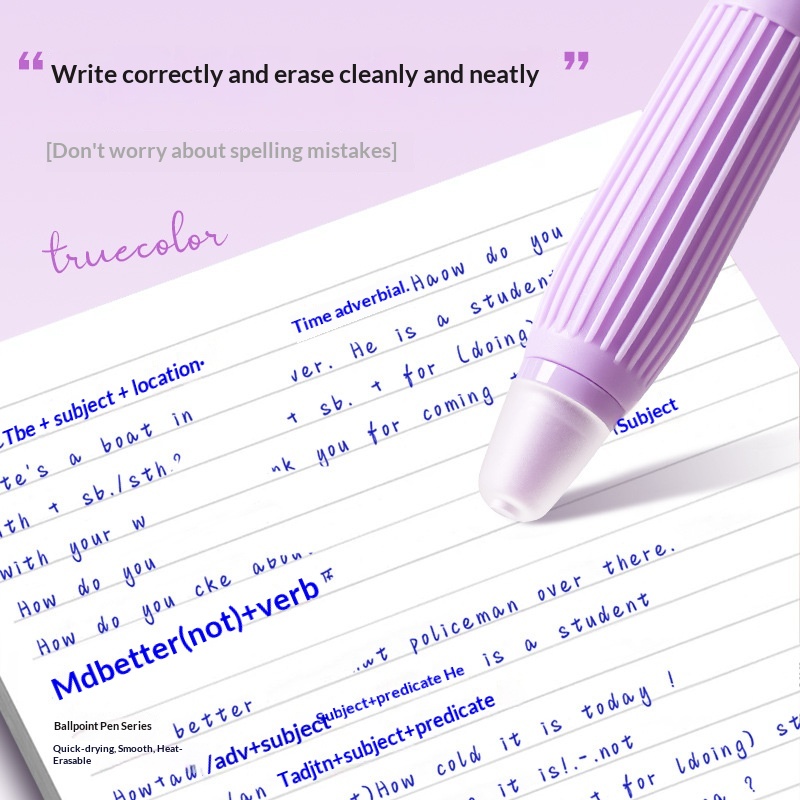 “ Write correctly and erase cleanly and neatly ”
[Don't worry about spelling mistakes]
truecolor
Time adverbial. Haow do you
Tbe + subject + location.
ver. He is a student
te's a boat in
+ sb. + for (doing)
ith + sb./sth.?
nk you for coming
Subject
with your w
How do you
How do you cke abou.
Mdbetter(not)+verb
policeman over there.
better
Subject+predicate He is a student
/adv+subject
Tadjtn+subject+predicate
How cold it is today !
it is!.-.not
t for (doing) st
a ?
Ballpoint Pen Series
Quick-drying, Smooth, Heat-
Erasable